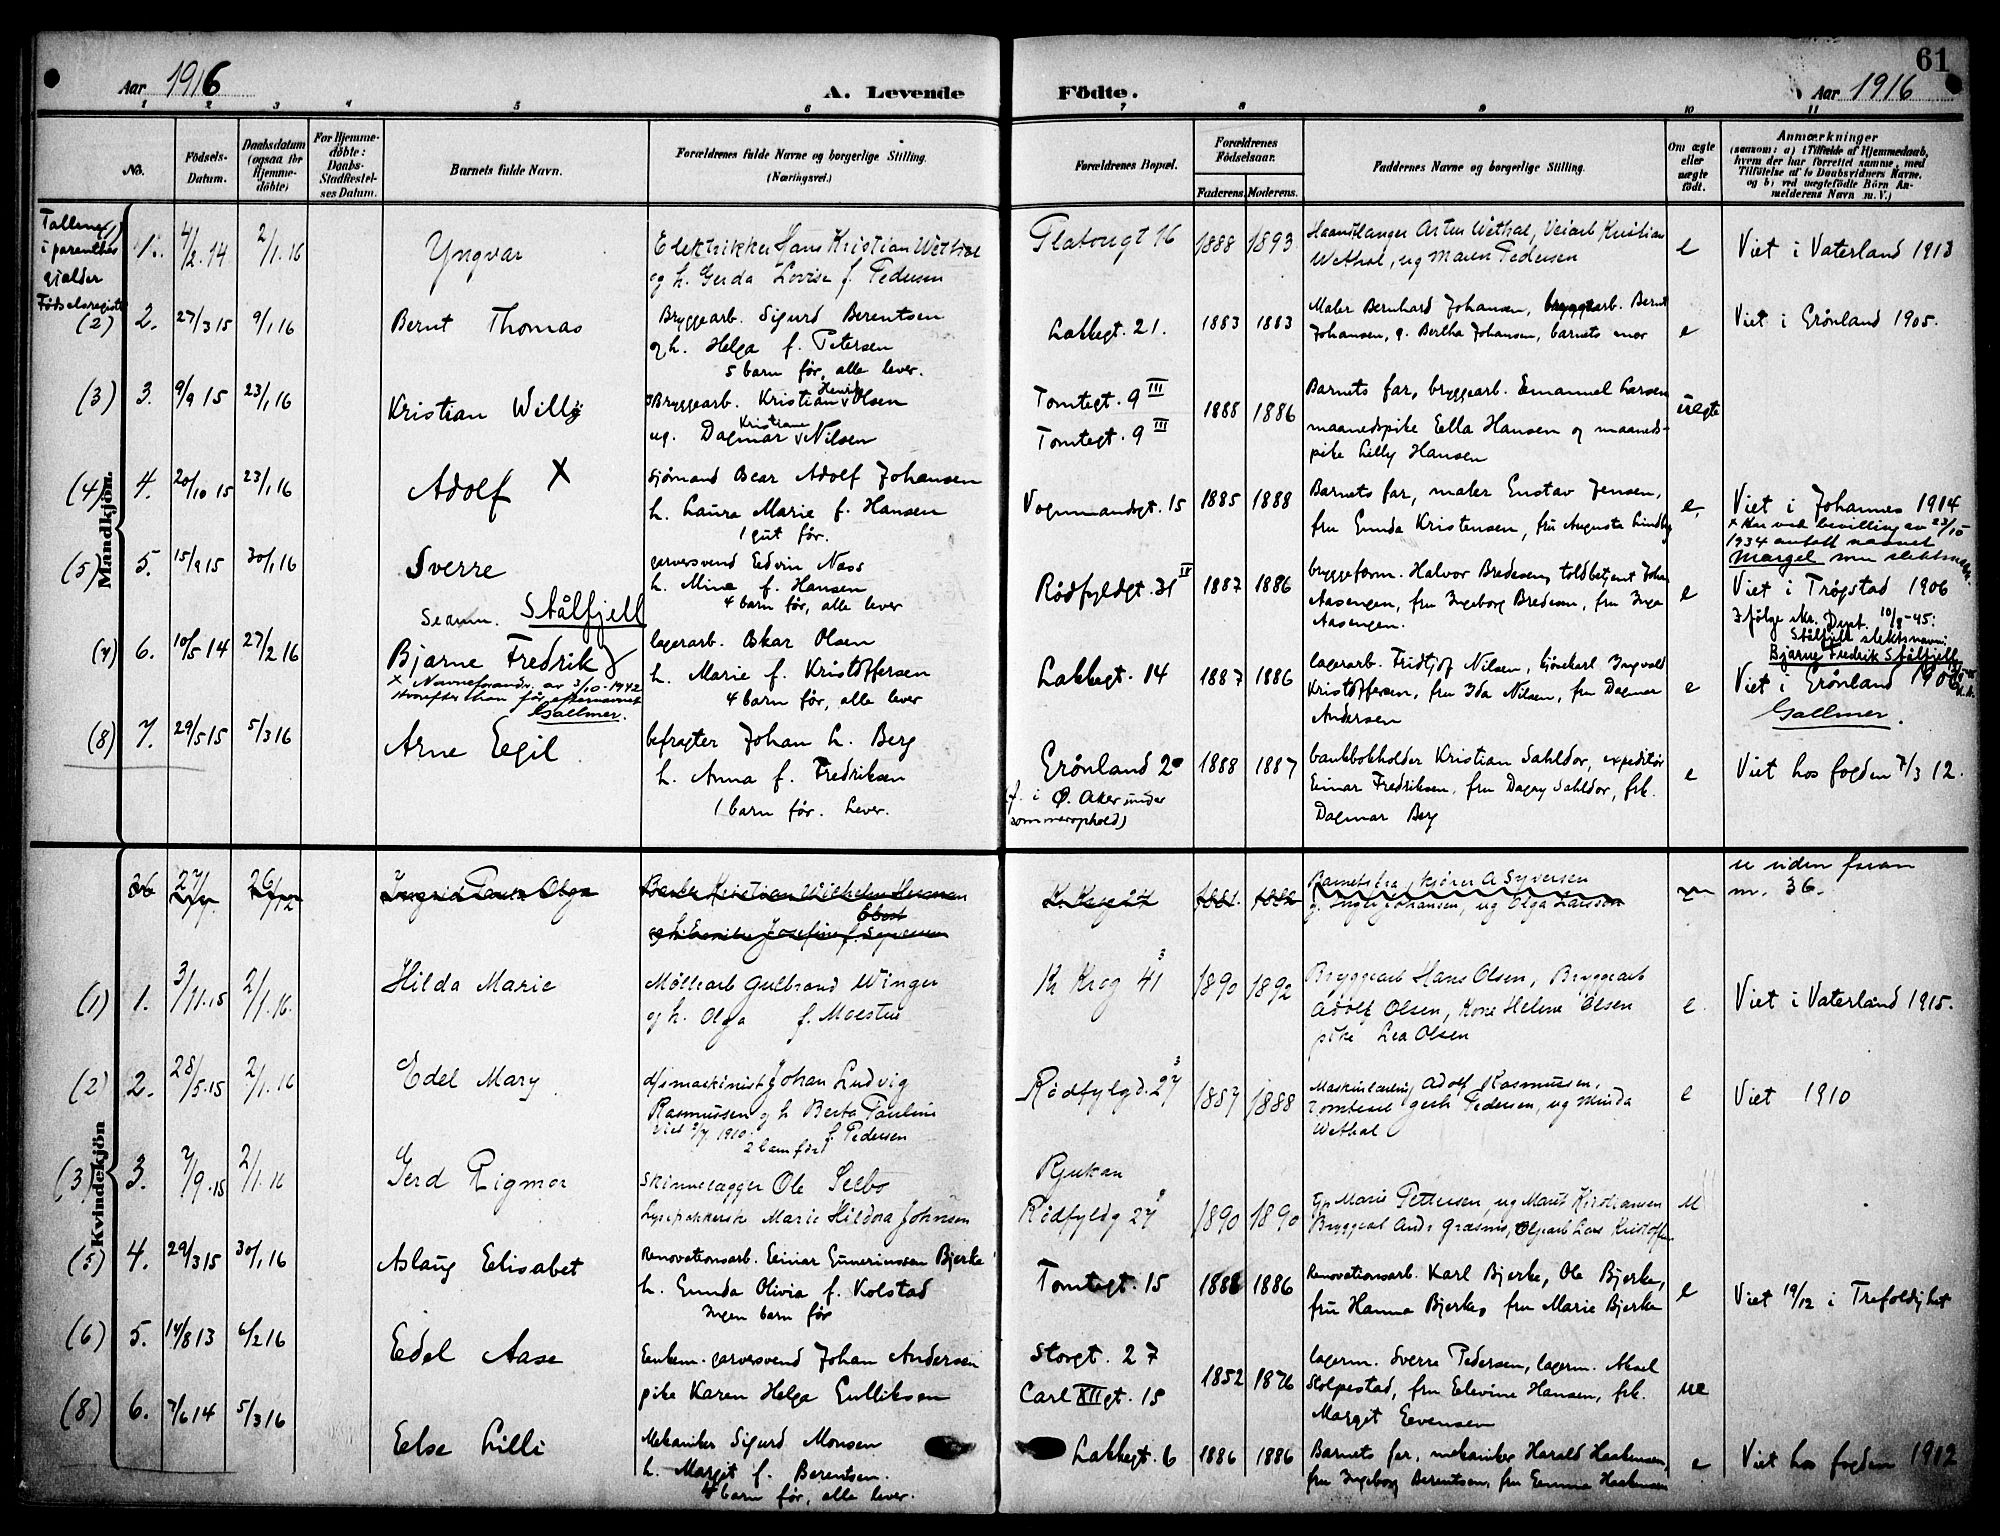 61
Aar 1916
A. Levende Födte.
Aar 1916
1 2 3 4 5 6 7 8 9 10 11
No.
Födsels-Datum.
Daabsdatum (ogsaa for Hjemme-döbte)
For Hjemme-döbte: Daabs-Stadfæstel-ses Datum.
Barnets fulde Navn.
Forældrenes fulde Navne og borgerlige Stilling.
(Næringsvei.)
Forældrenes Bopæl.
Forældrenes Födselsaar.
Faderens. Moderens.
Faddernes Navne og borgerlige Stilling.
Om ægte eller uægte födt.
Anmærkninger
(saasom: a) i Tilfælde af Hjemmedaab,
hvem der har forrettet samme, med
Tilföielse af to Daabsvidners Navne,
og b) ved uægtefödte Börn An-
melderens Navn m. V.)
Tallene
i parenthes
gjælder
Fødselsregister
Mandkjön.
1. 4/2.14 2/1.16 Yngvar
Elektrikker Hans Kristian Wethal
og h. Gerda Lovise f. Pedersen
1888 1893
Wethal, ug Maren Pedersen
e Viet i Vaterland 1913
(2) 2. 27/3 15 9/1 16 Bernt Thomas
Bryggearb. Sigurd Berentsen
og h. Helga f. Petersen
5 barn før, alle lever.
Lakkegt. 21. 1883 1883
Maler Bernhard Johansen, bryggearb. Bernt
Johansen, g. Bertha Johansen, barnets mor
e Viet i Grønland 1905.
(3) 3. 9/9 15 23/1 16 Kristian Willy
Bryggearb. Kristian Henrik Olsen
ug. Dagmar Kristiane Nilsen
Tomtegt. 9 III
Tomtegt. 9 III
1888 1886
Barnets far, bryggearb. Emanuel Larsen
maanedspike Ella Hansen og maaneds-
pike Lilly Hansen
uegte
(4) 4. 20/10 15 23/1 16 Adolf X
Sjømand Oscar Adolf Johansen
h. Laura Marie f. Hansen
1 gut før.
Vognmandsgt. 15 1885 1888
Barnets far, maler Gustav Jensen,
fru Gunda Kristensen, fru Augusta Lindby
e, Viet i Johannes 1914
x Har ved bevilling av 23/10
1934 antatt navnet
Margel som slektsnavn.
(5) 5. 15/9 15 30/1 16 Sverre
garversvend Edvin Næss
h. Mina f. Hansen
4 barn før, alle lever
Rødfyldgt. 31 IV 1887 1886
bryggeform. Halvor Bredesen, toldbetjent Joh.
Aasengen, fru Ingeborg Bredesen, fru Inga
Aasengen.
e Viet i Trøgstad 1906
Stålfjell
(7) 6. 10/5 14 27/2 16 Bjarne Fredrik
x Navneforandr. av 3/10-1942
hvorefter han får efternavnet
Gallmer.
lagerarb. Oskar Olsen
h. Marie f. Kristoffersen
4 barn før, alle lever
Lakkegt. 14 1887 1886
lagerarb. Fridtjof Nilsen, Ingvald
Kristoffersen, fru Ida Nilsen, fru Dagmar
Andersen
e I følge skr. Dept. 10/8-45:
Stålfjell slektsnavn:
Bjarne Fredrik Stålfjell
Viet i Grønland 1906
Gallmer.
(8) 7. 29/5 15 5/3 16 Arne Egil
befragter Johan L. Berg
h. Anna f. Fredriksen
1 barn før. Lever.
Grønland 20
(f. i Ø. Aker under
sommerophold)
1888 1887
bankbokholder Kristian Sahldor, expeditør
Einar Fredriksen, fru Dagny Sahldor, frk.
Dagmar Berg
e Viet hos fogden 7/3 12.
Kvindekjön
36
Kristian Wilhelm Herman
Ebert
Barnets far, kjører A Syversen
g. Inga Johansen, ug Olga Larsen
se siden foran
nr. 36.
(1) 1. 3/11.15 2/1.16. Hilda Marie
Møllearb Gulbrand Winger
og h. Olga f. Moestue
Kr Krog 41 3 1890 1892
Bryggearb Hans Olsen, Bryggearb
Adolf Olsen, Kone Helene Olsen
pike Lea Olsen
e. Viet i Vaterland 1915.
(2) 2. 28/5.15 2/1.16 Edel Mary
d/s maskinist Johan Ludvig
Rasmussen og h Berta Pauline
viet 2/7 1910. f. Pedersen
2 barn før
Rødfylgd. 27 3 1887 1888
Adolf Rasmussen,
Pedersen, ug Minda
Wethal
e Viet 1910
(3) 3. 7/9.15 2/1.16 Gerd Rigmor
Skinnelægger Ole Seebo
Marie Hildora Johnsen
Rjukan
Rødfyldg 27 1890 1890
Marie Pettersen, ug Marit Kristiansen
u
(5) 4. 29/3 15 30/1 16 Aslaug Elisabet
Renovationsarb. Einar Gunerinssen Bjerke
h. Gunda Olivia f. Kolstad
Ingen barn før
Tomtegt. 15 1888 1886
Renovationsarb. Karl Bjerke, Ole Bjerke,
fru Hanna Bjerke, fru Marie Bjerke
e Viet 19/12 i Trefoldighet
(6) 5. 14/8 13 6/2 16 Edel Aase
Enkem. garversvend Johan Andersen
pike Karen Helga Gulliksen
Storgt. 27
Carl XIIgt. 15
1852 1876
lagerm. Sverre Pedersen, lagerm. Aksel
Stolpestad, fru Elevine Hansen, frk.
Margit Evensen
ue
(8) 6. 7/6 14 5/3 16 Else Lilli
Mekaniker Sigurd Monsen
h. Margit f. Berentsen.
4 barn før, alle lever.
Lakkegt. 6 1886 1886
Barnets far, mekaniker Harald Haakensen,
fru Ingeborg Berentsen, fru Emma Haakensen
e Viet hos fogden 1912